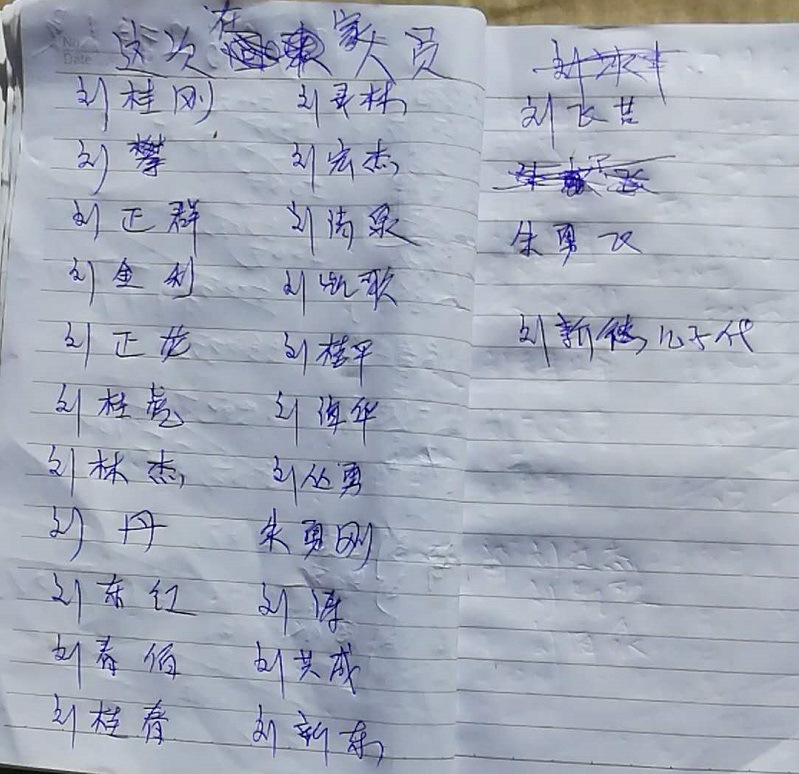 这次在家人员
刘桂刚 刘弄林
刘攀 刘宏杰
刘正群 刘清泉
刘金利 刘凯歌
刘正龙 刘桂平
刘桂亮 刘海华
刘林杰 刘丛勇
刘丹 朱勇刚
刘东红 刘涛
刘春伯 刘共成
刘桂春 刘新东
刘飞
朱勇飞
刘新德儿子代